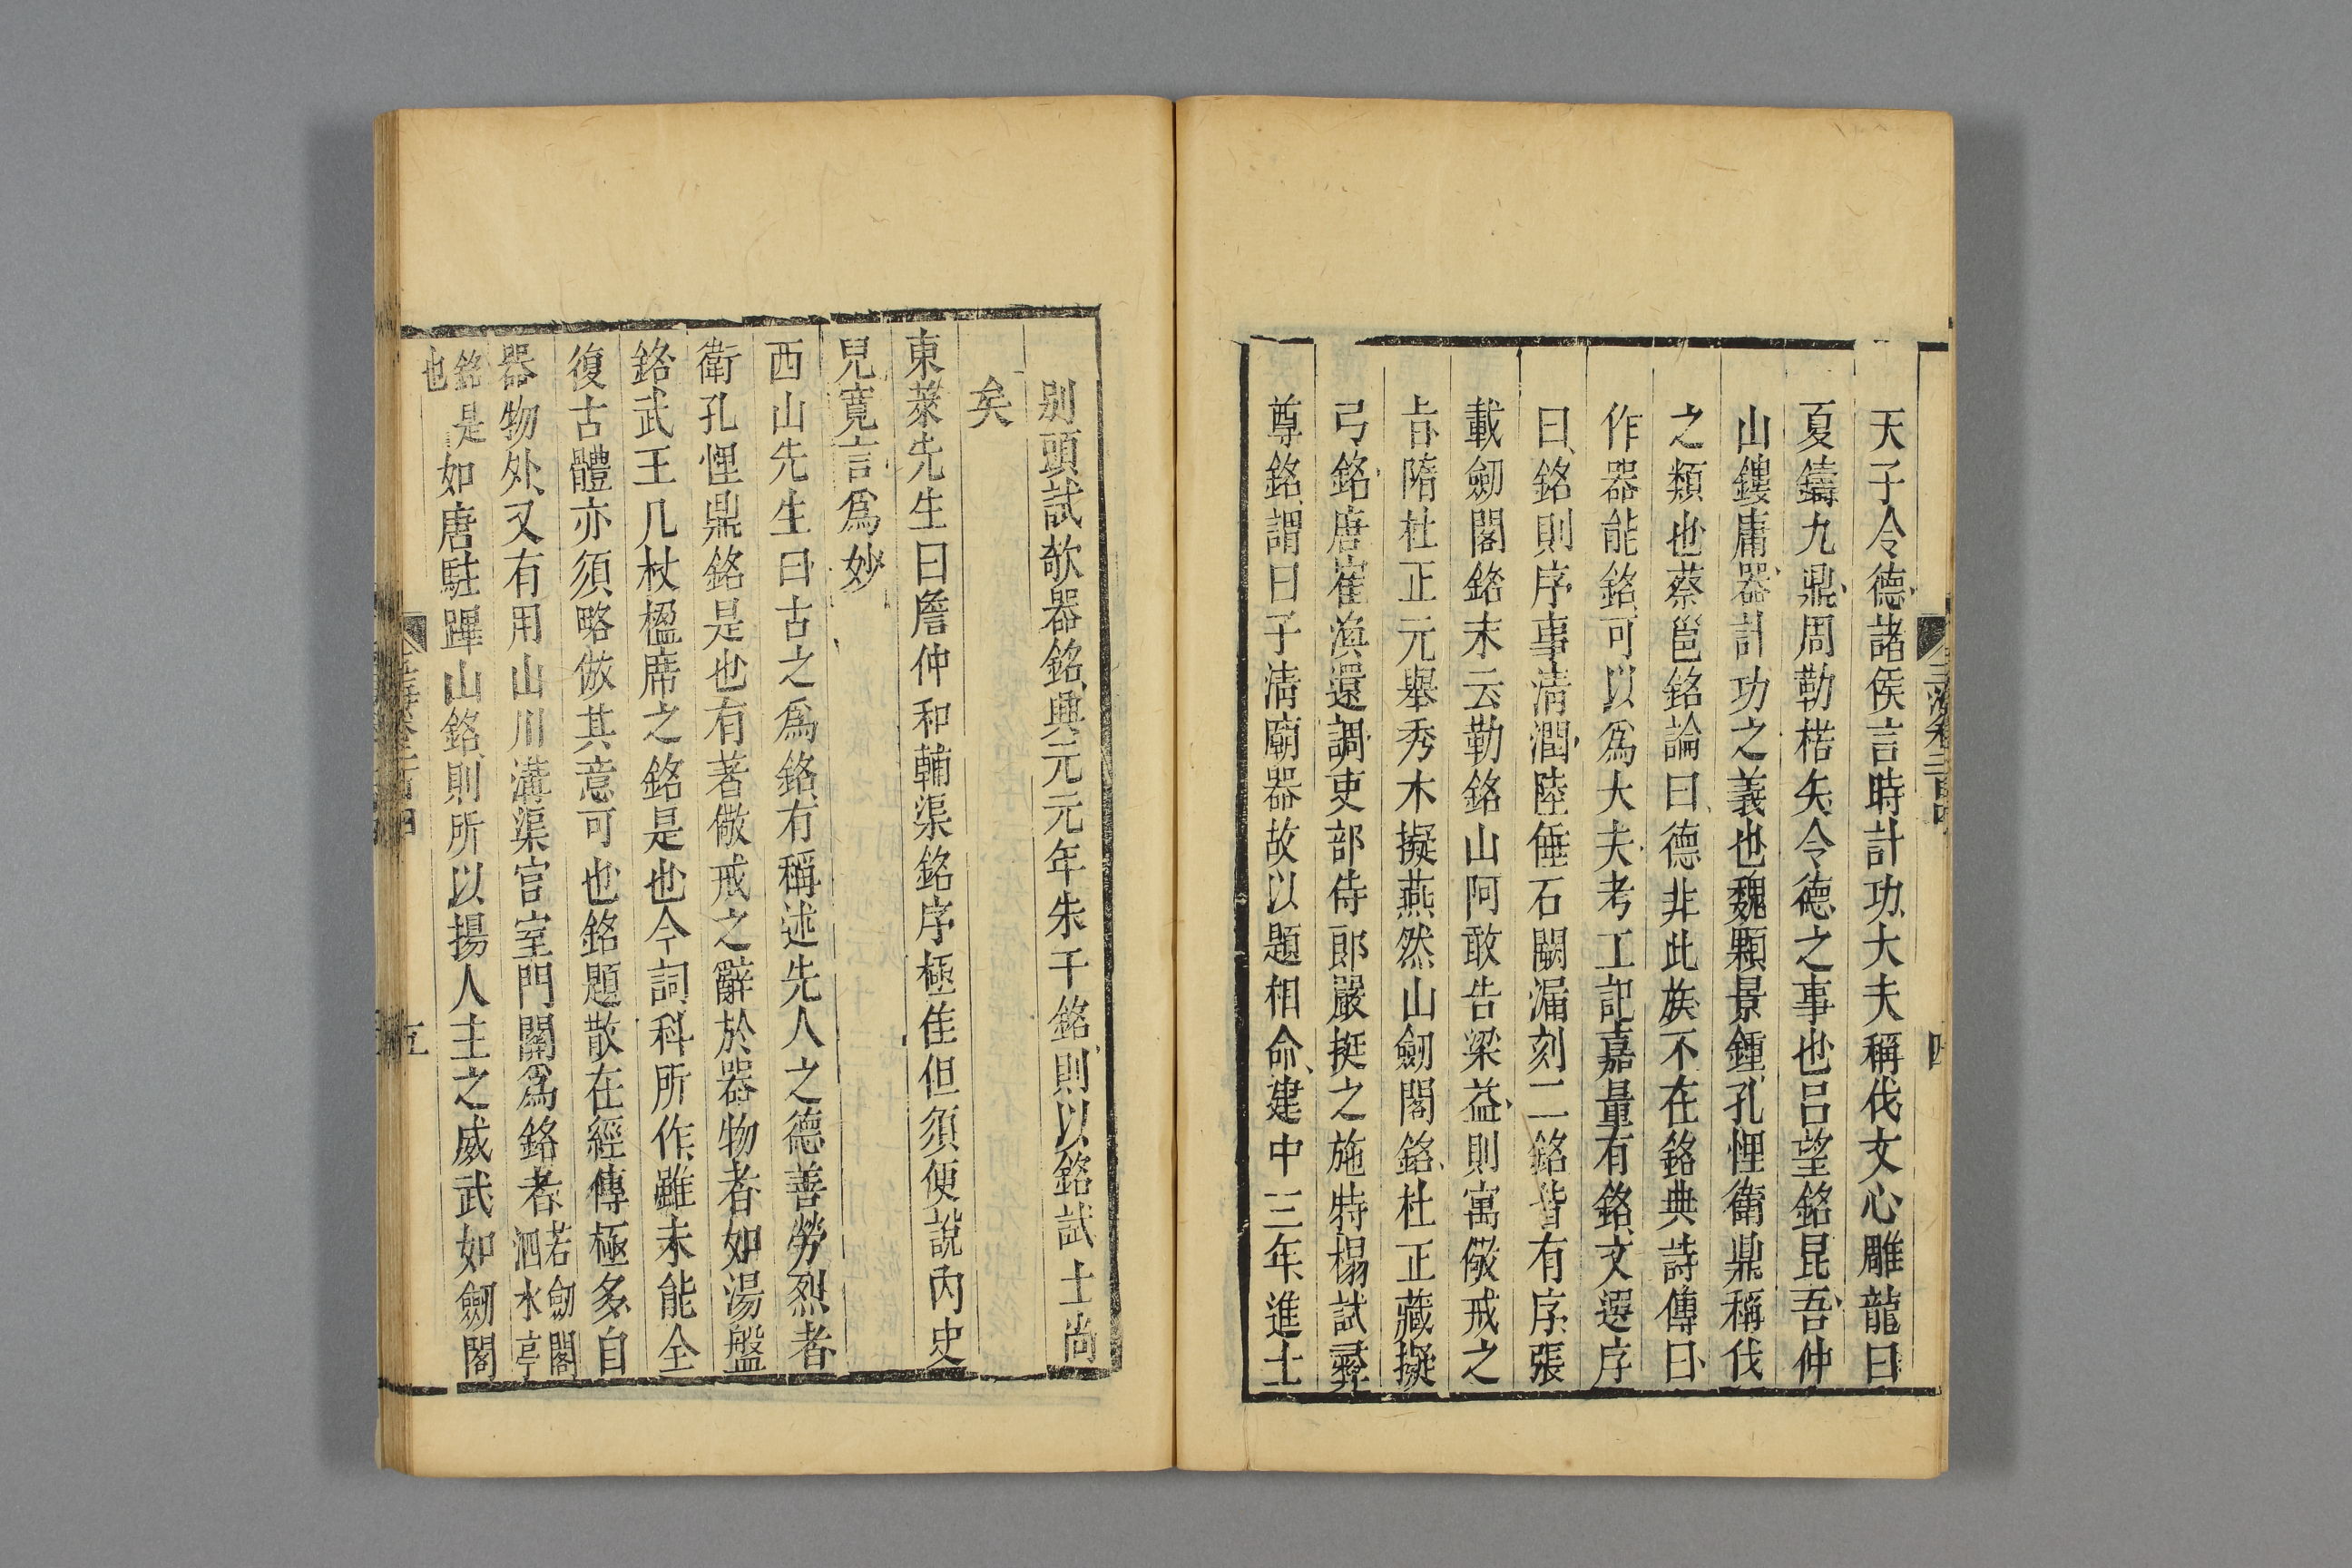 天子令德諸侯言時計功大夫稱伐文心雕龍曰
夏鑄九鼎周勒楛矢令德之事也呂望銘昆吾仲
山鏤庸器計功之義也魏顆景鍾孔悝衛鼎稱伐
之類也蔡邕銘論曰德非此族不在銘典詩傳曰
作器能銘可以爲大夫考工記嘉量有銘文選序
曰銘則序事淸潤陸倕石闕漏刻二銘皆有序張
載劒閣銘末云勒銘山阿敢告梁益則寓儆戒之
㫖隋杜正元舉秀才擬燕然山劒閣銘杜正藏擬
弓銘唐崔湠還調吏部侍郞嚴挺之施特榻試彛
尊銘謂曰子淸廟器故以題相命建中三年進士
別頭試欹器銘興元元年朱干銘則以銘試士尚
矣
東萊先生曰詹仲和輔渠銘序極佳但須便說內史
兒寬言爲妙
西山先生曰古之爲銘有稱述先人之德善勞烈者
衛孔悝鼎銘是也有著儆戒之辭於器物者如湯盤
銘武王几杖楹席之銘是也今詞科所作雖未能全
復古體亦須略倣其意可也銘題散在經傳極多自
器物外又有用山川溝渠宮室門關爲銘者若劒閣
泗水亭
銘是
也
如唐駐蹕山銘則所以揚人主之威武如劒閣